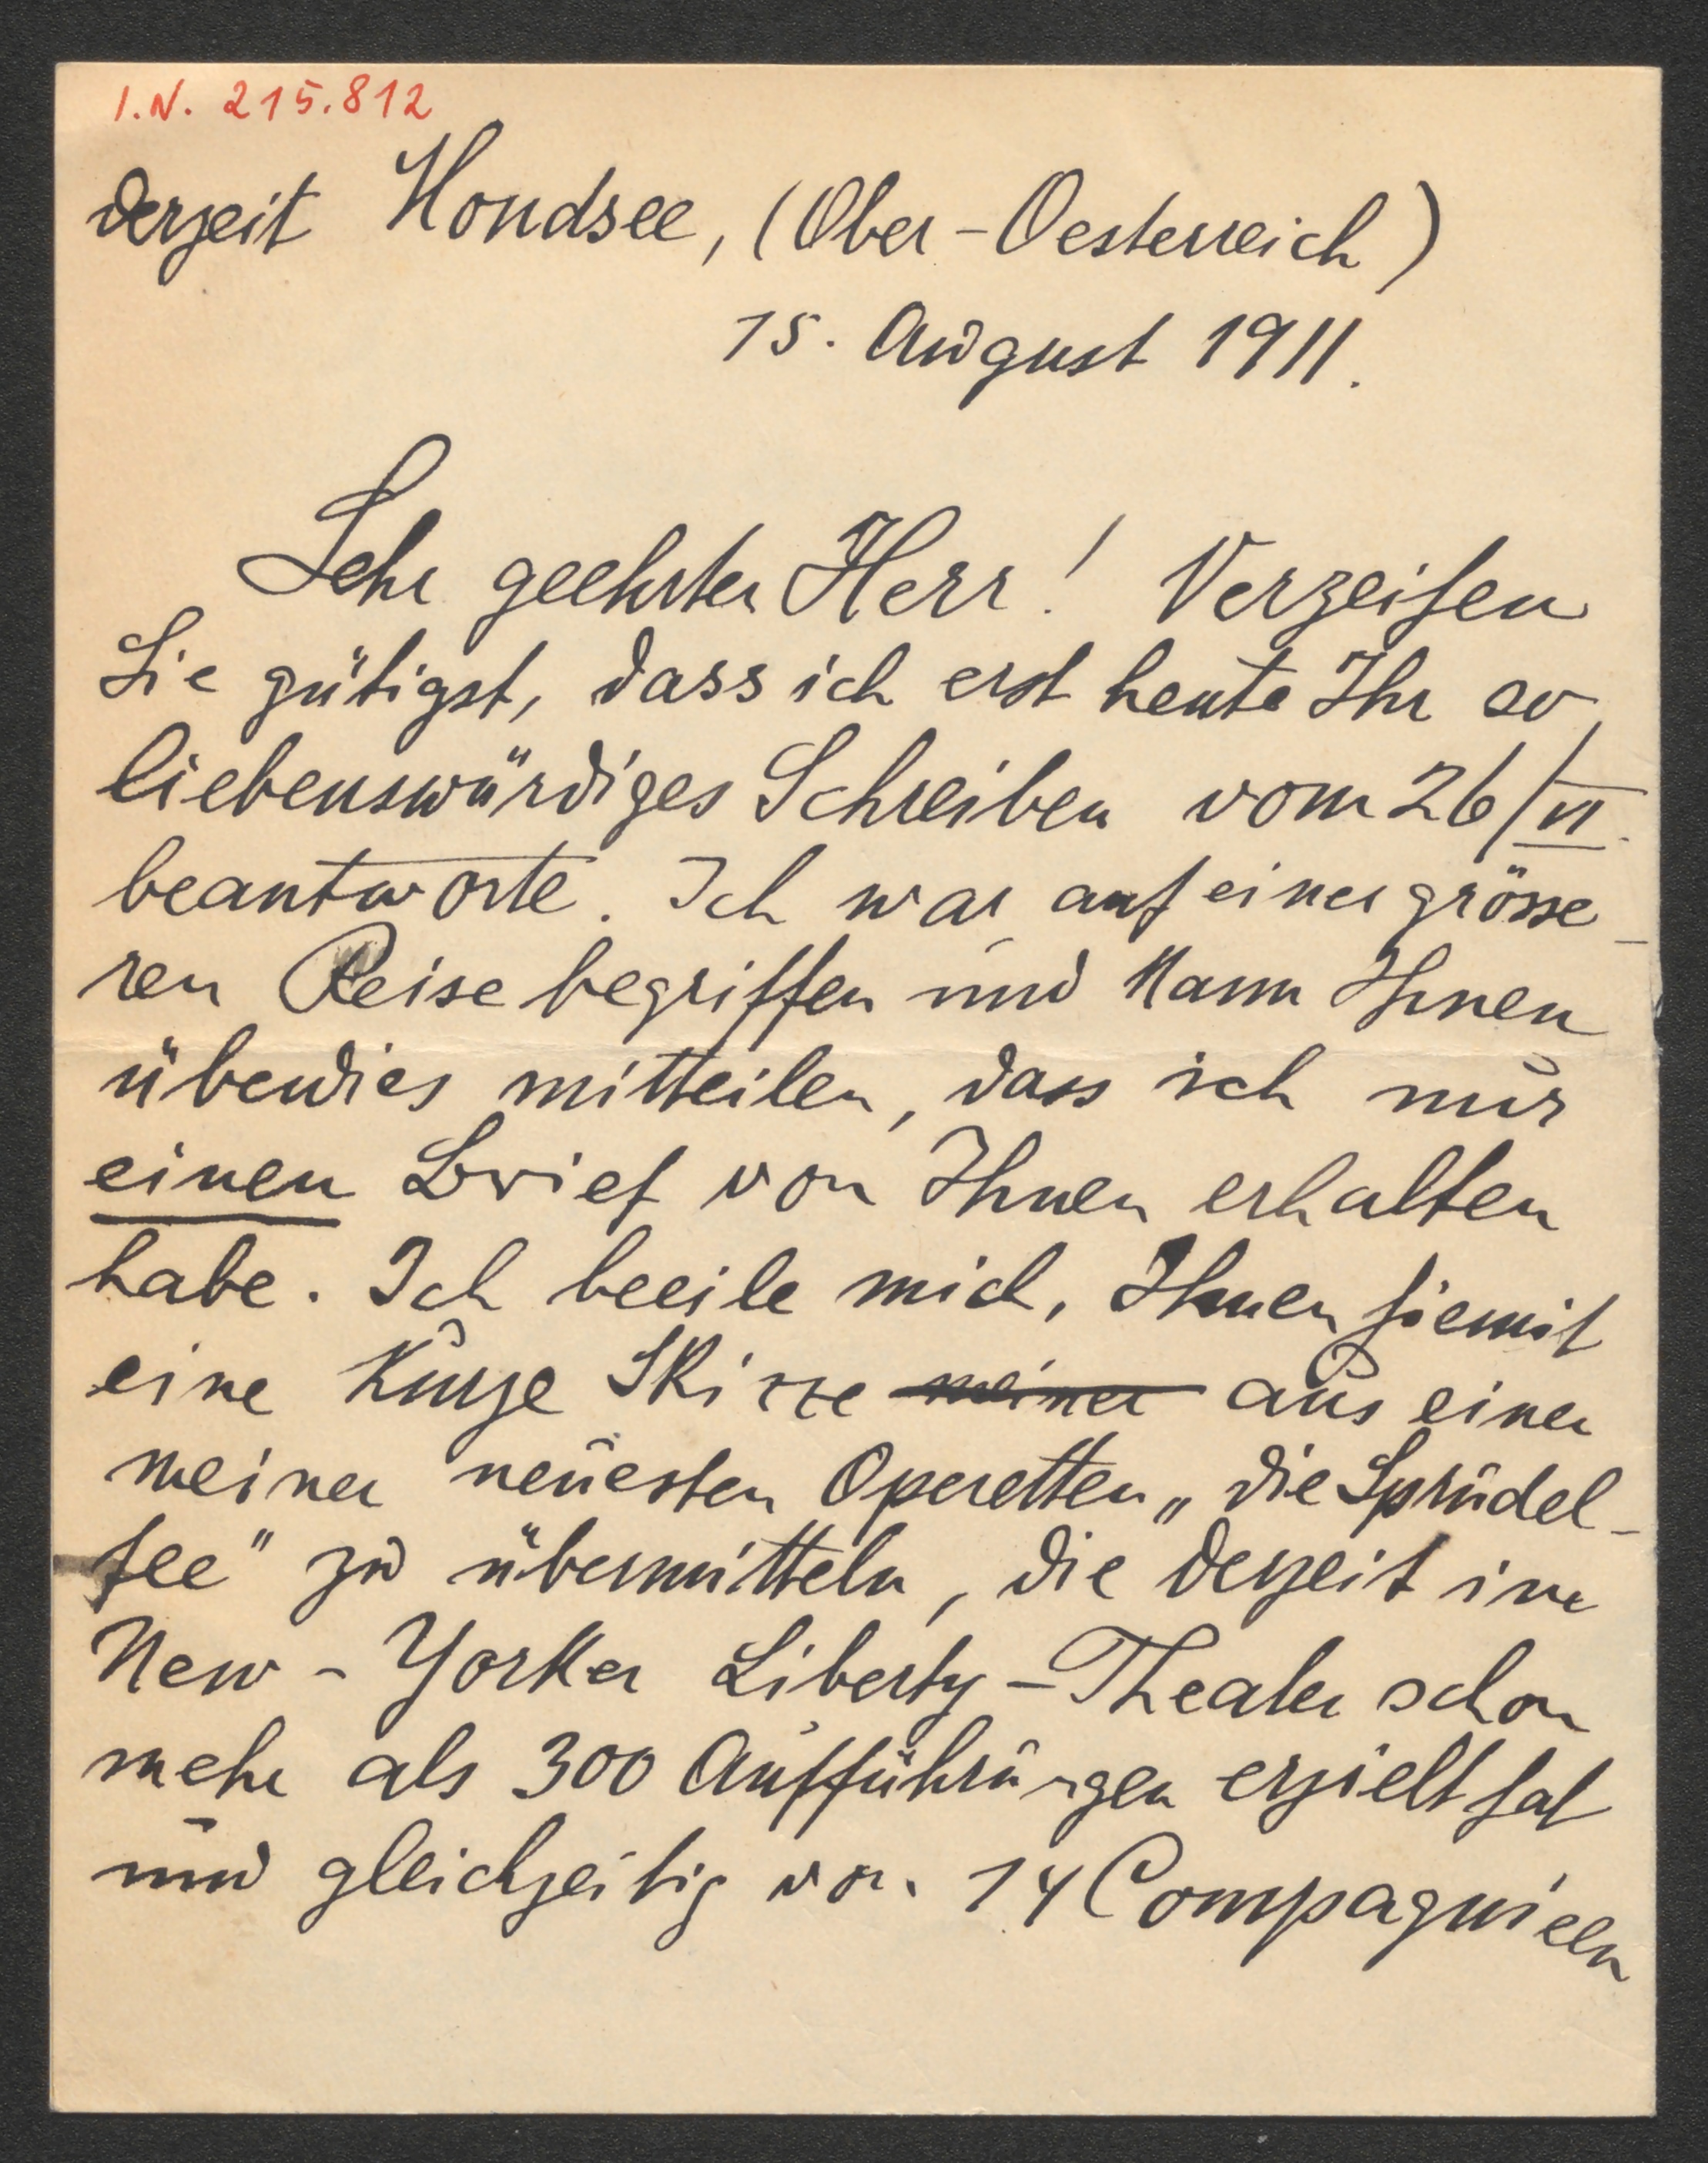 I.N. 215.812
derzeit Mondsee, (Ober-Oesterreich)
15. August 1911.
Sehr geehrter Herr! Verzeihen
Sie gütigst, dass ich erst heute Ihr so
liebenswürdiges Schreiben vom 26/VI.
beantworte. Ich war auf einer grösse-
ren Reise begriffen und kann Ihnen
überdies mitteilen, dass ich nur
einen Brief von Ihnen erhalten
habe. Ich beeile mich, Ihnen hiemit
eine kurze Skizze meiner aus einer
meiner neuesten Operetten „die Sprudel-
fee" zu übermitteln, die derzeit im
New-Yorker Liberty-Theater schon
mehr als 300 Aufführungen erzielt hat
und gleichzeitig von 14 Compagnieen